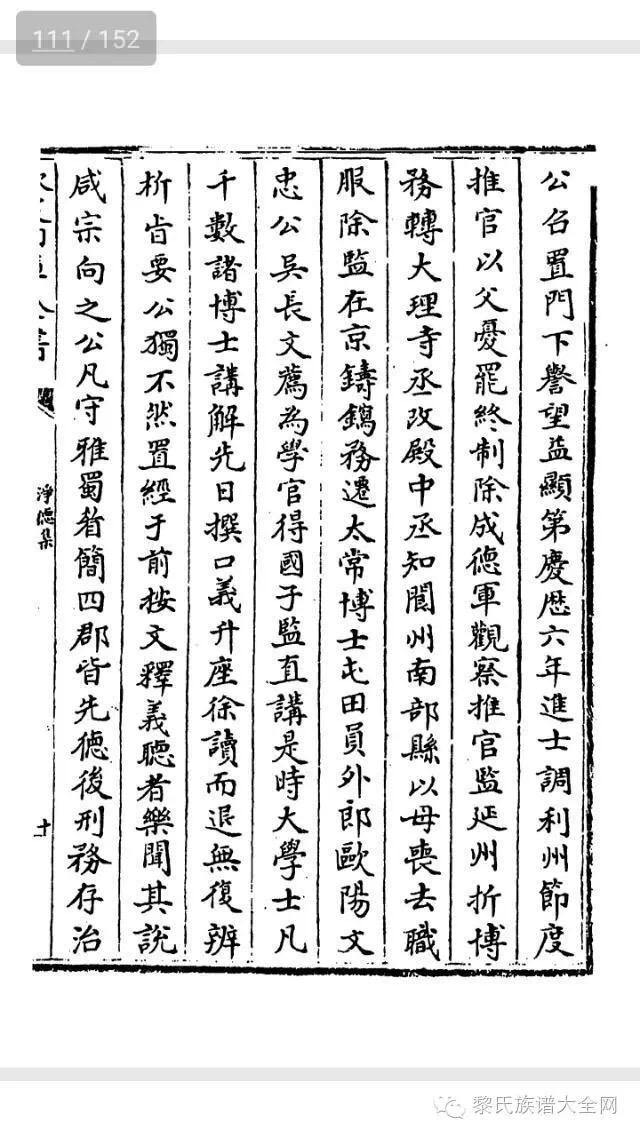 111 / 152
公召置門下譽望益顯第慶厯六年進士調利州節度
推官以父憂罷終制除成德軍觀察推官監延州折博
務轉大理寺丞改殿中丞知閬州南部縣以母喪去職
服除監在京鑄鎢務遷太常博士屯田員外郎歐陽文
忠公吳長文薦為學官得國子監直講是時大學士凡
千數諸博士講解先日撰口義升座徐讀而退無復辨
析㫖要公獨不然置經于前按文釋義聽者樂聞其説
咸宗向之公凡守雅蜀眉簡四郡皆先德後刑務存治
淨德集
十
黎氏族谱大全网